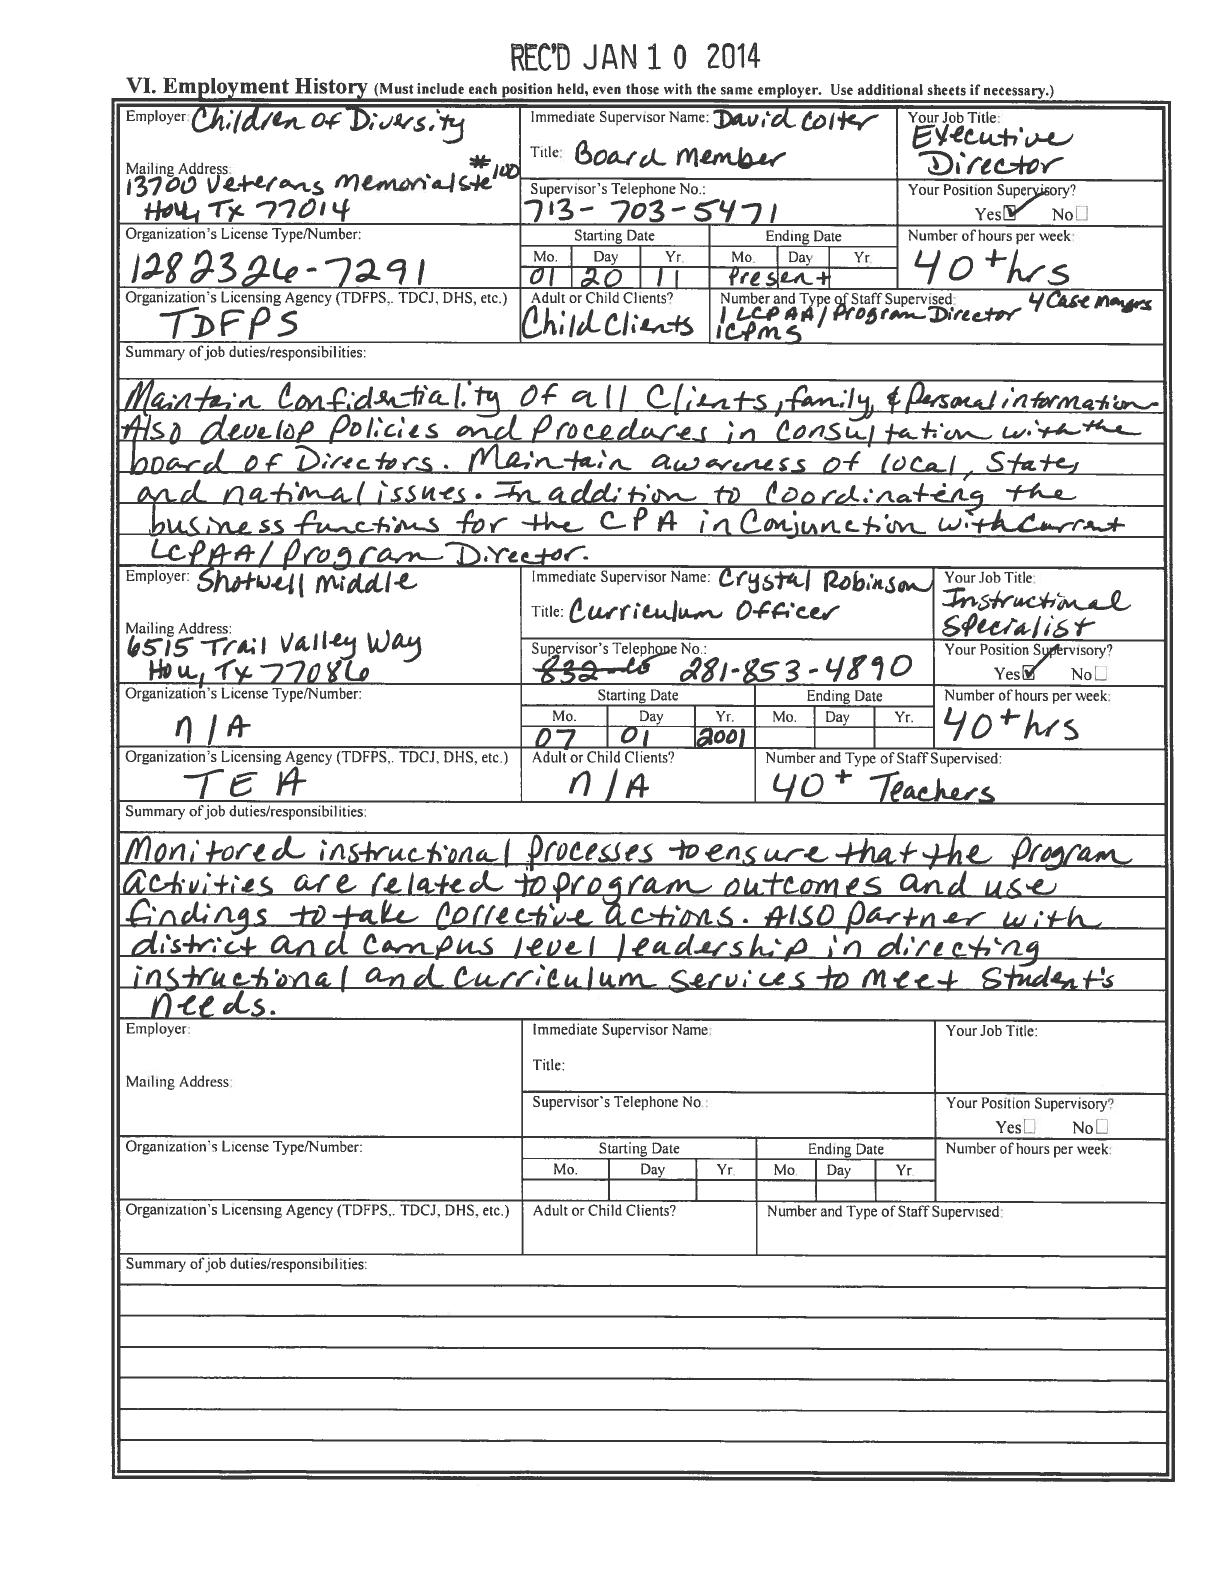 REC'D JAN 10 2014
VI. Employment History (Must include each position held, even those with the same employer. Use additional sheets if necessary.)
Employer: Children of Diversity
Mailing Address:
13700 Veterans Memorial Ste #100
Hou, Tx 77014
Immediate Supervisor Name: David Colter
Title: Board Member
Supervisor's Telephone No.:
713-703-5471
Your Job Title:
Executive
Director
Your Position Supervisory?
Yes No
Organization's License Type/Number:
1282326-7291
Starting Date
Mo. Day Yr.
01 20 11
Ending Date
Mo. Day Yr.
Present
Number of hours per week:
40+hrs
Organization's Licensing Agency (TDFPS,. TDCJ, DHS, etc.)
TDFPS
Adult or Child Clients?
Child Clients
Number and Type of Staff Supervised: 4 Case
1 LCPAA/Program Director
1CPMS
Summary of job duties/responsibilities:
Maintain Confidentiality of all Clients, family, & Personal information.
Also develop Policies and Procedures in Consultation with the
board of Directors. Maintain awareness of local, State,
and national issues. In addition to Coordinating the
business functions for the CPA in Conjunction with Current
LCPAA/Program Director.
Employer: Shotwell Middle
Mailing Address:
6515 Trail Valley Way
Hou, Tx 77086
Immediate Supervisor Name: Crystal Robinson
Title: Curriculum Officer
Supervisor's Telephone No.:
281-853-4890
Your Job Title:
Instructional
Specialist
Your Position Supervisory?
Yes No
Organization's License Type/Number:
n/A
Starting Date
Mo. Day Yr.
07 01 2001
Ending Date
Mo. Day Yr.
Number of hours per week:
40+hrs
Organization's Licensing Agency (TDFPS,. TDCJ, DHS, etc.)
TEA
Adult or Child Clients?
n/A
Number and Type of Staff Supervised:
40+ Teachers
Summary of job duties/responsibilities:
Monitored instructional processes to ensure that the program
activities are related to program outcomes and use
findings to take corrective actions. Also partner with
district and campus level leadership in directing
instructional and curriculum services to meet Student's
needs.
Employer:
Mailing Address:
Immediate Supervisor Name:
Title:
Supervisor's Telephone No.:
Your Job Title:
Your Position Supervisory?
Yes No
Organization's License Type/Number:
Starting Date
Mo. Day Yr.
Ending Date
Mo. Day Yr.
Number of hours per week:
Organization's Licensing Agency (TDFPS,. TDCJ, DHS, etc.)
Adult or Child Clients?
Number and Type of Staff Supervised:
Summary of job duties/responsibilities: